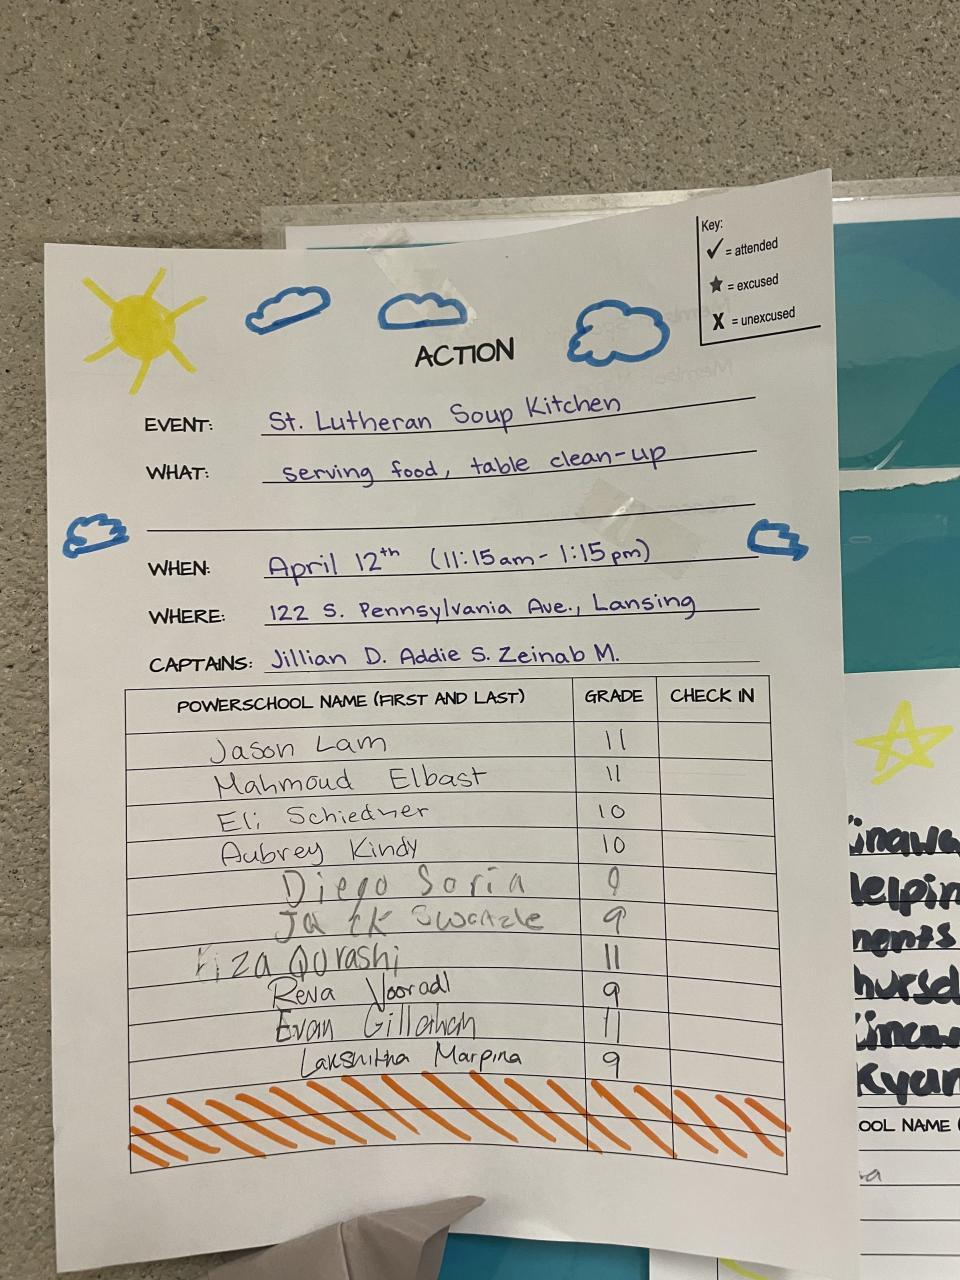 Key:
✓ = attended
★ = excused
X = unexcused
ACTION
EVENT: St. Lutheran Soup Kitchen
WHAT: serving food, table clean-up
WHEN: April 12th (11:15am - 1:15pm)
WHERE: 122 S. Pennsylvania Ave., Lansing
CAPTAINS: Jillian D. Addie S. Zeinab M.
POWERSCHOOL NAME (FIRST AND LAST) GRADE CHECK IN
Jason Lam 11
Mahmoud Elbast 11
Eli Schiedner 10
Aubrey Kindy 10
Diego Soria 9
Swartzle 9
Qurashi 11
Reva 9
Evan Gillahan 11
Lakshitha Marpina 9
OOL NAME (